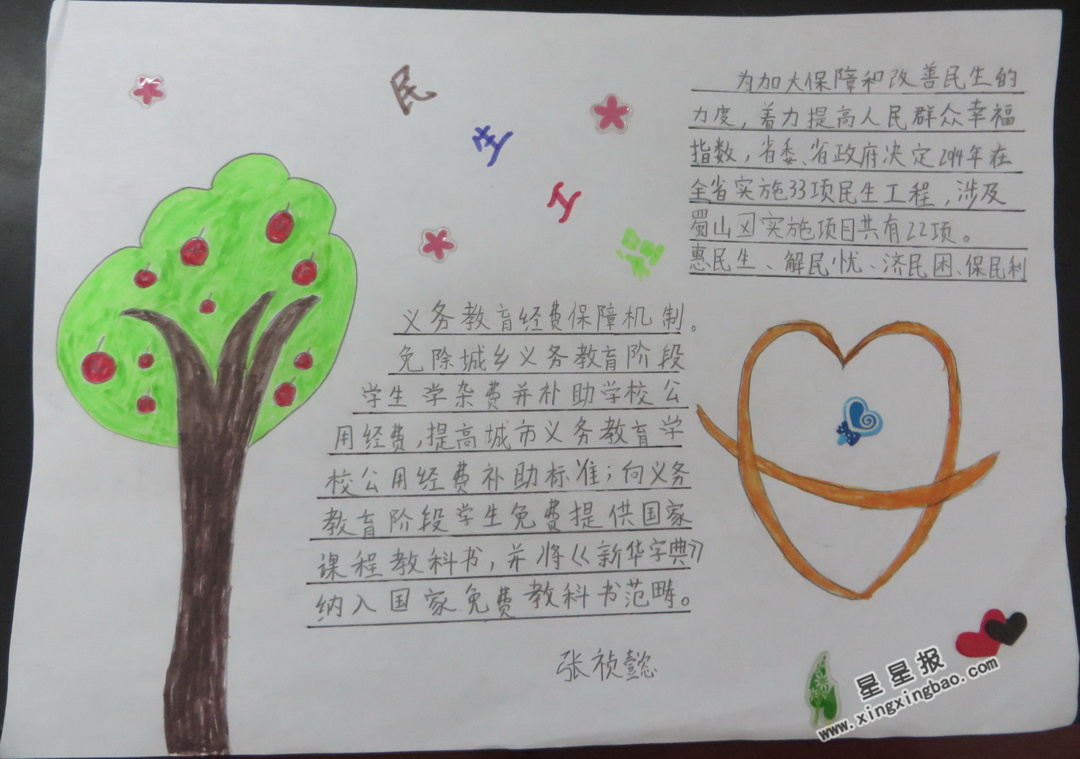 民
生
工
程
为加大保障和改善民生的
力度，着力提高人民群众幸福
指数，省委、省政府决定2014年在
全省实施33项民生工程，涉及
蜀山区实施项目共有22项。
惠民生、解民忧、济民困、保民利
义务教育经费保障机制。
免除城乡义务教育阶段
学生学杂费并补助学校公
用经费，提高城市义务教育学
校公用经费补助标准；向义务
教育阶段学生免费提供国家
课程教科书，并将《新华字典》
纳入国家免费教科书范畴。
张祯懿
星星报
www.xingxingbao.com